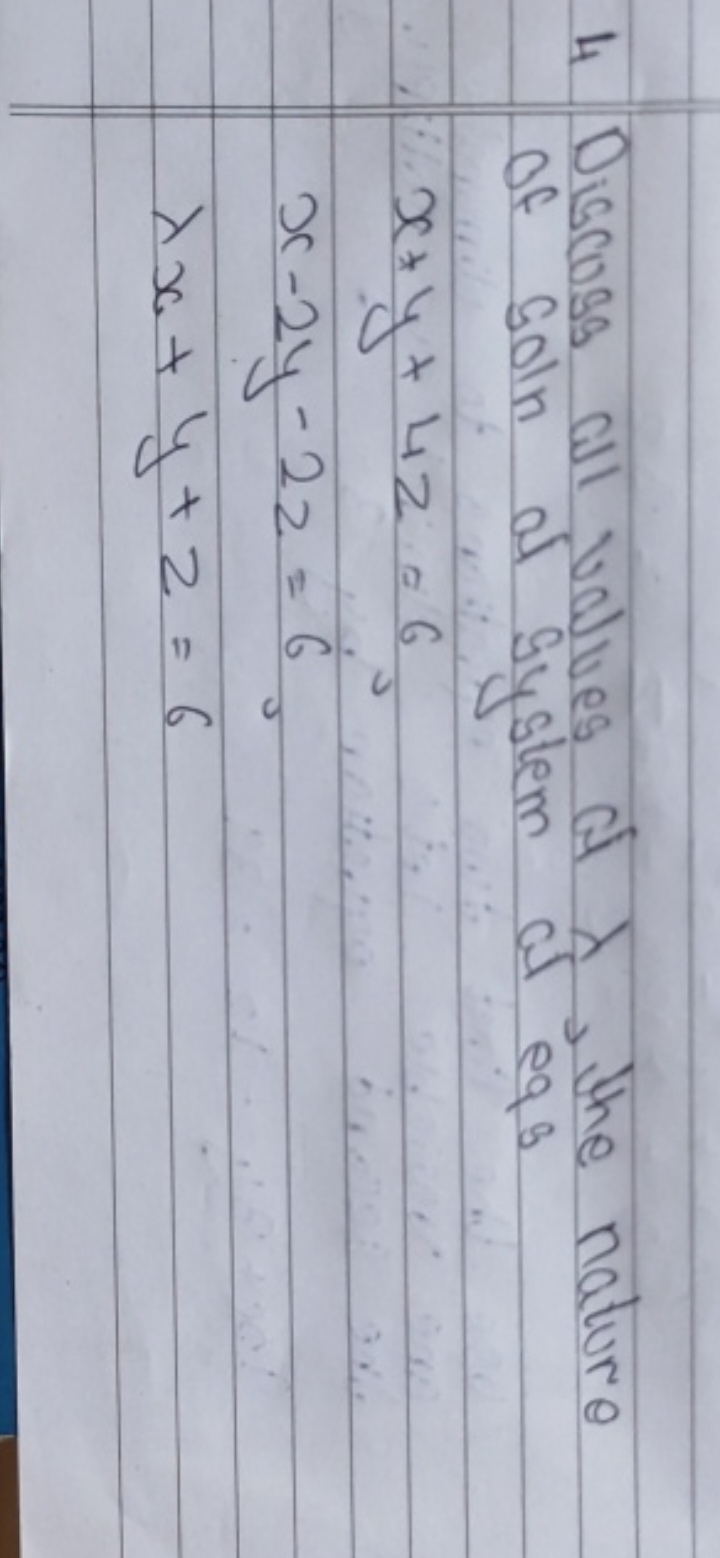 4 Discuss all values of λ, the nature
of soln of system of eqs
x + y + 4z = 6,
x - 2y - 2z = 6,
λx + y + z = 6